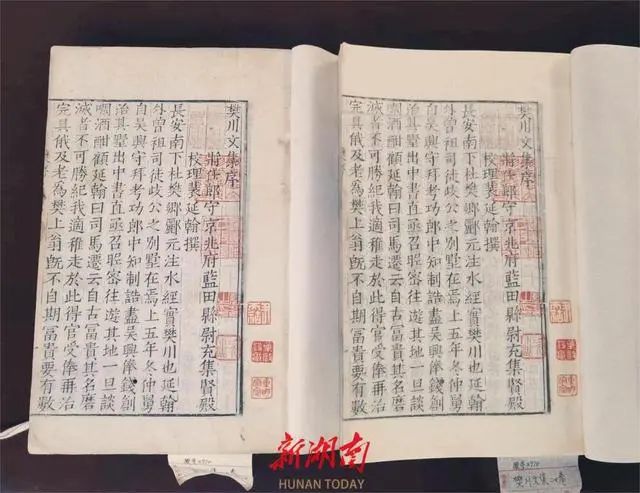 樊川文集序
將仕郎守京兆府藍田縣尉充集賢殿
校理裴延翰撰
長安南下杜樊鄉酈元注水經實樊川也延翰
外曾祖司徒岐公之别墅在焉上五年冬仲舅
自吳興守拜考功郎中知制誥盡吳興俸錢創
治其墅出中書直亟召昵密往遊其地一旦談
啁酒酣顧延翰曰司馬遷云自古富貴其名磨
滅者不可勝紀我適稚走於此得官受俸再治
完具俄及老為樊上翁既不自期富貴要有數
樊川文集序
將仕郎守京兆府藍田縣尉充集賢殿
校理裴延翰撰
長安南下杜樊鄉酈元注水經實樊川也延翰
外曾祖司徒岐公之别墅在焉上五年冬仲舅
自吳興守拜考功郎中知制誥盡吳興俸錢創
治其墅出中書直亟召昵密往遊其地一旦談
啁酒酣顧延翰曰司馬遷云自古富貴其名磨
滅者不可勝紀我適稚走於此得官受俸再治
完具俄及老為樊上翁既不自期富貴要有數
樊川文集
新湖南
HUNAN TODAY